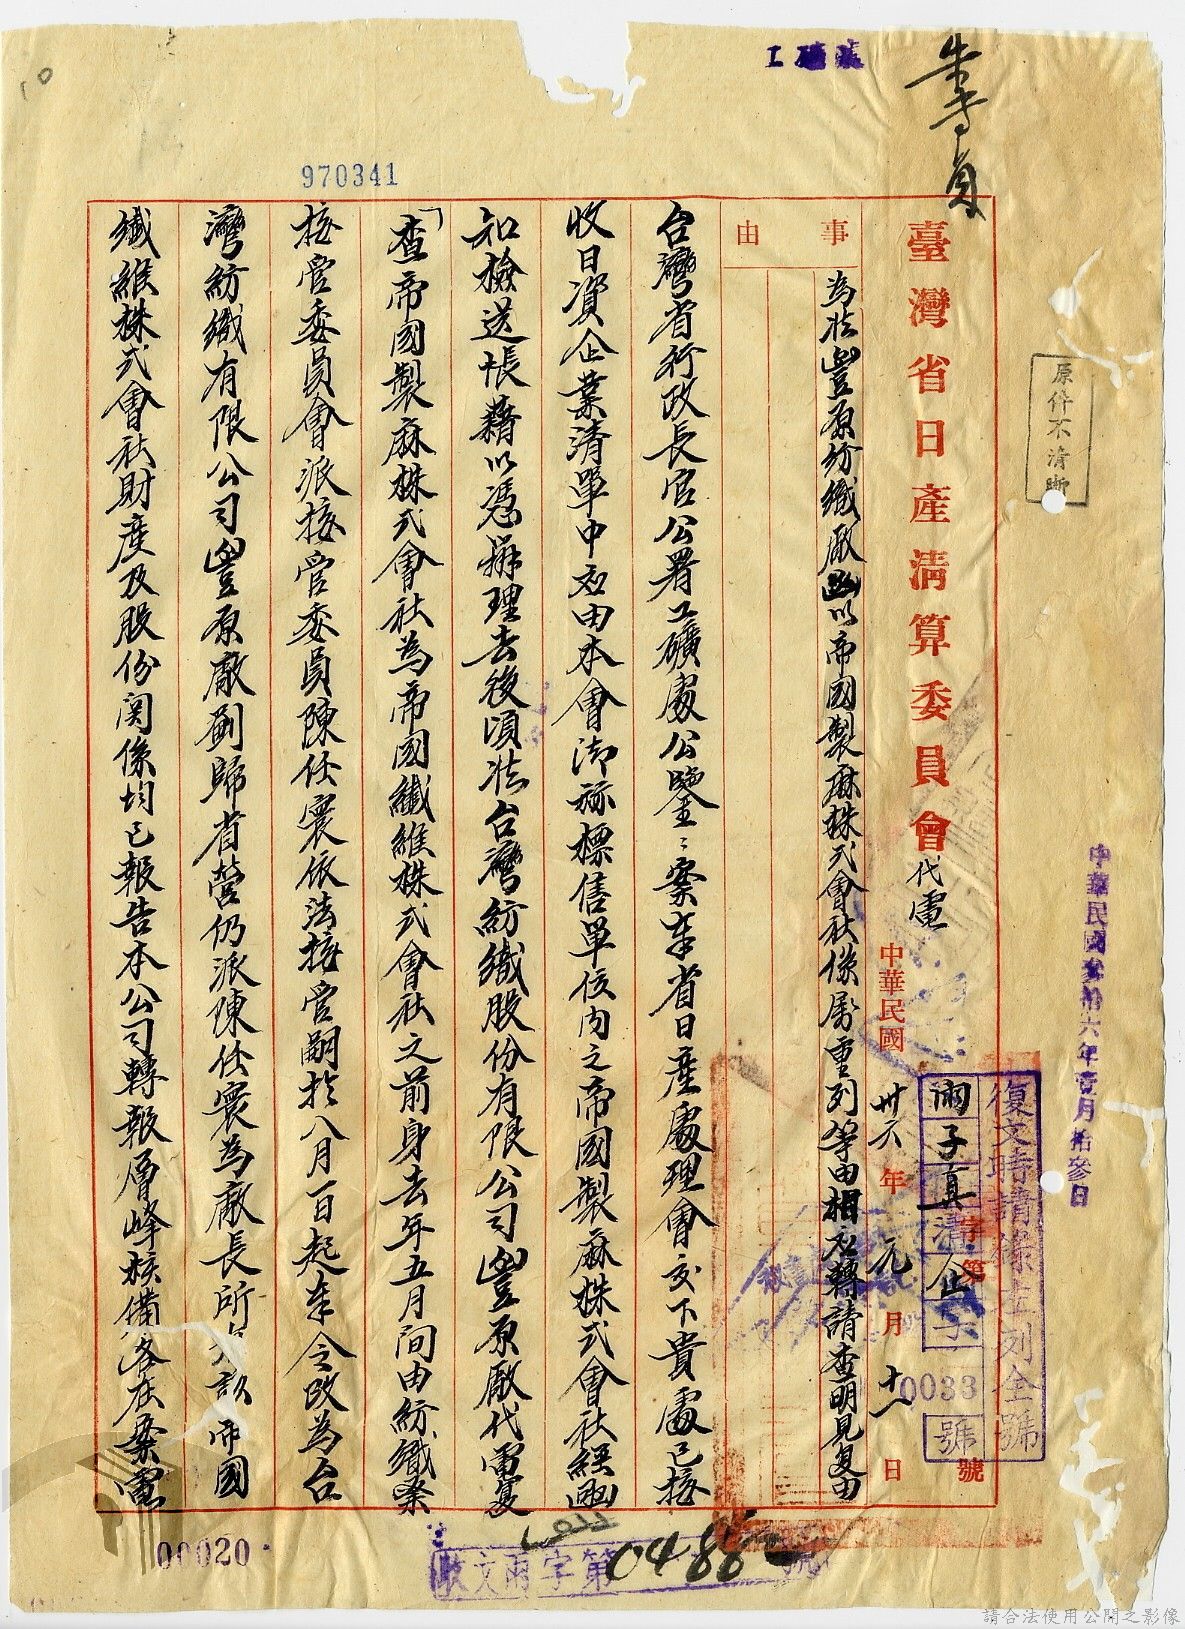 朱專員
工礦處
970341
原件不清晰
中華民國參拾六年壹月拾參日
臺灣省日產清算委員會代電
中華民國卅六年元月十一日
字第 號
復文時請繕上列全號
雨子真清企
0033
號
事由
為准豐原紡織廠函以帝國製麻株式會社係屬重列等由相應轉請查明見复由
台灣省行政長官公署工礦處公鑒:案奉省日產處理會交下貴處已接
收日資企業清單中应由本會洽辦標售單位內之帝國製麻株式會社經函
知檢送帳藉以憑辦理去後頃准台灣紡織股份有限公司豐原廠代電复
「查帝國製麻株式會社為帝國纖維株式會社之前身去年五月間由紡織業
接管委員會派接管委員陳任寰依法接管嗣於八月一日起奉令改為台
灣紡織有限公司豐原廠劃歸省營仍派陳任寰為廠長所有該帝國
纖維株式會社財產及股份関係均已報告本公司轉報層峰核備各在案電
00020
收文雨字第0488號
請合法使用公開之影像